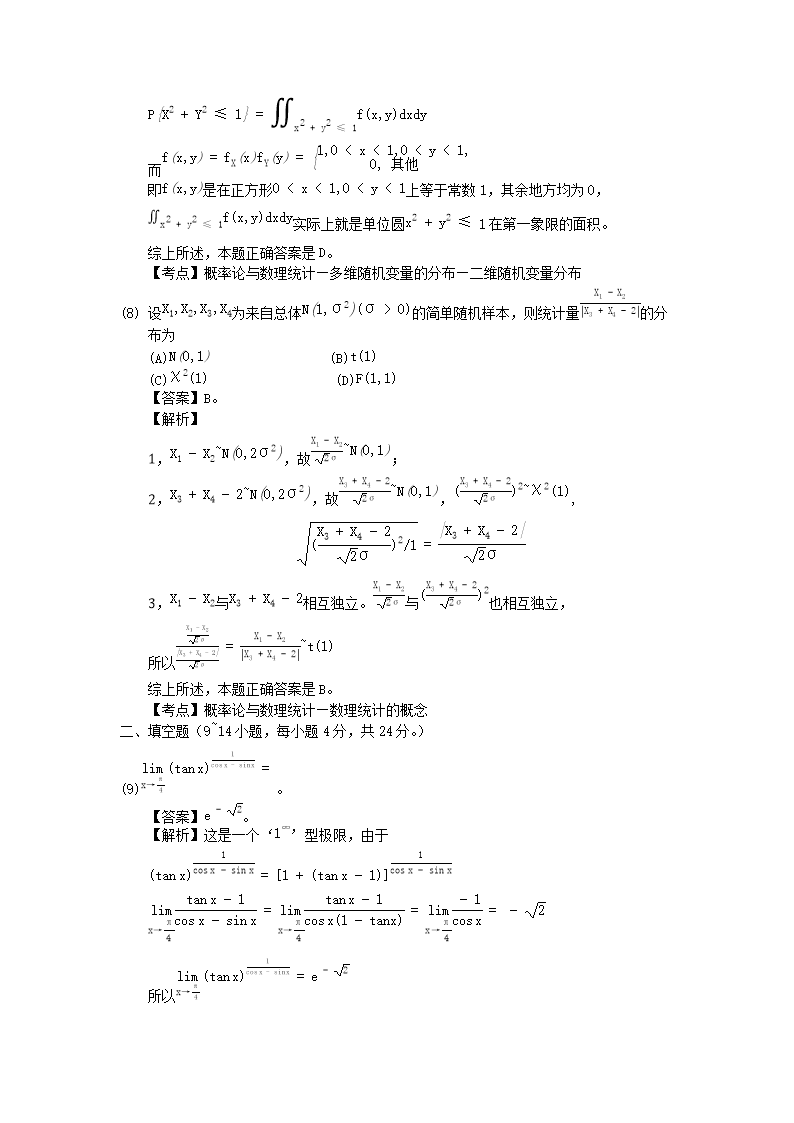 P{X² + Y² ≤ 1} = ∬_{x² + y² ≤ 1} f(x,y)dxdy
而f(x,y) = f_X(x)f_Y(y) = {1,0 < x < 1,0 < y < 1,
0, 其他
即f(x,y)是在正方形0 < x < 1,0 < y < 1上等于常数1，其余地方均为0，
∬_{x² + y² ≤ 1} f(x,y)dxdy实际上就是单位圆x² + y² ≤ 1在第一象限的面积。
综上所述，本题正确答案是D。
【考点】概率论与数理统计—多维随机变量的分布—二维随机变量分布
(8) 设X₁,X₂,X₃,X₄为来自总体N(1,σ²)(σ > 0)的简单随机样本，则统计量(X₁ − X₂)/|X₃ + X₄ − 2|的分
布为
(A)N(0,1) (B)t(1)
(C)χ²(1) (D)F(1,1)
【答案】B。
【解析】
1，X₁ − X₂~N(0,2σ²)，故(X₁ − X₂)/(√2σ)~N(0,1)；
2，X₃ + X₄ − 2~N(0,2σ²)，故(X₃ + X₄ − 2)/(√2σ)~N(0,1)，((X₃ + X₄ − 2)/(√2σ))²~χ²(1),
√(((X₃ + X₄ − 2)/(√2σ))²/1) = |X₃ + X₄ − 2|/(√2σ)
3，X₁ − X₂与X₃ + X₄ − 2相互独立。(X₁ − X₂)/(√2σ)与((X₃ + X₄ − 2)/(√2σ))²也相互独立，
所以((X₁ − X₂)/(√2σ))/(|X₃ + X₄ − 2|/(√2σ)) = (X₁ − X₂)/|X₃ + X₄ − 2|~t(1)
综上所述，本题正确答案是B。
【考点】概率论与数理统计—数理统计的概念
二、填空题（9~14小题，每小题4分，共24分。）
(9) lim_{x→π/4} (tan x)^{1/(cos x − sin x)} = 。
【答案】e^{−√2}。
【解析】这是一个‘1^∞’型极限，由于
(tan x)^{1/(cos x − sin x)} = [1 + (tan x − 1)]^{1/(cos x − sin x)}
lim_{x→π/4} (tan x − 1)/(cos x − sin x) = lim_{x→π/4} (tan x − 1)/(cos x(1 − tanx)) = lim_{x→π/4} (− 1)/(cos x) = − √2
所以lim_{x→π/4} (tan x)^{1/(cos x − sin x)} = e^{−√2}